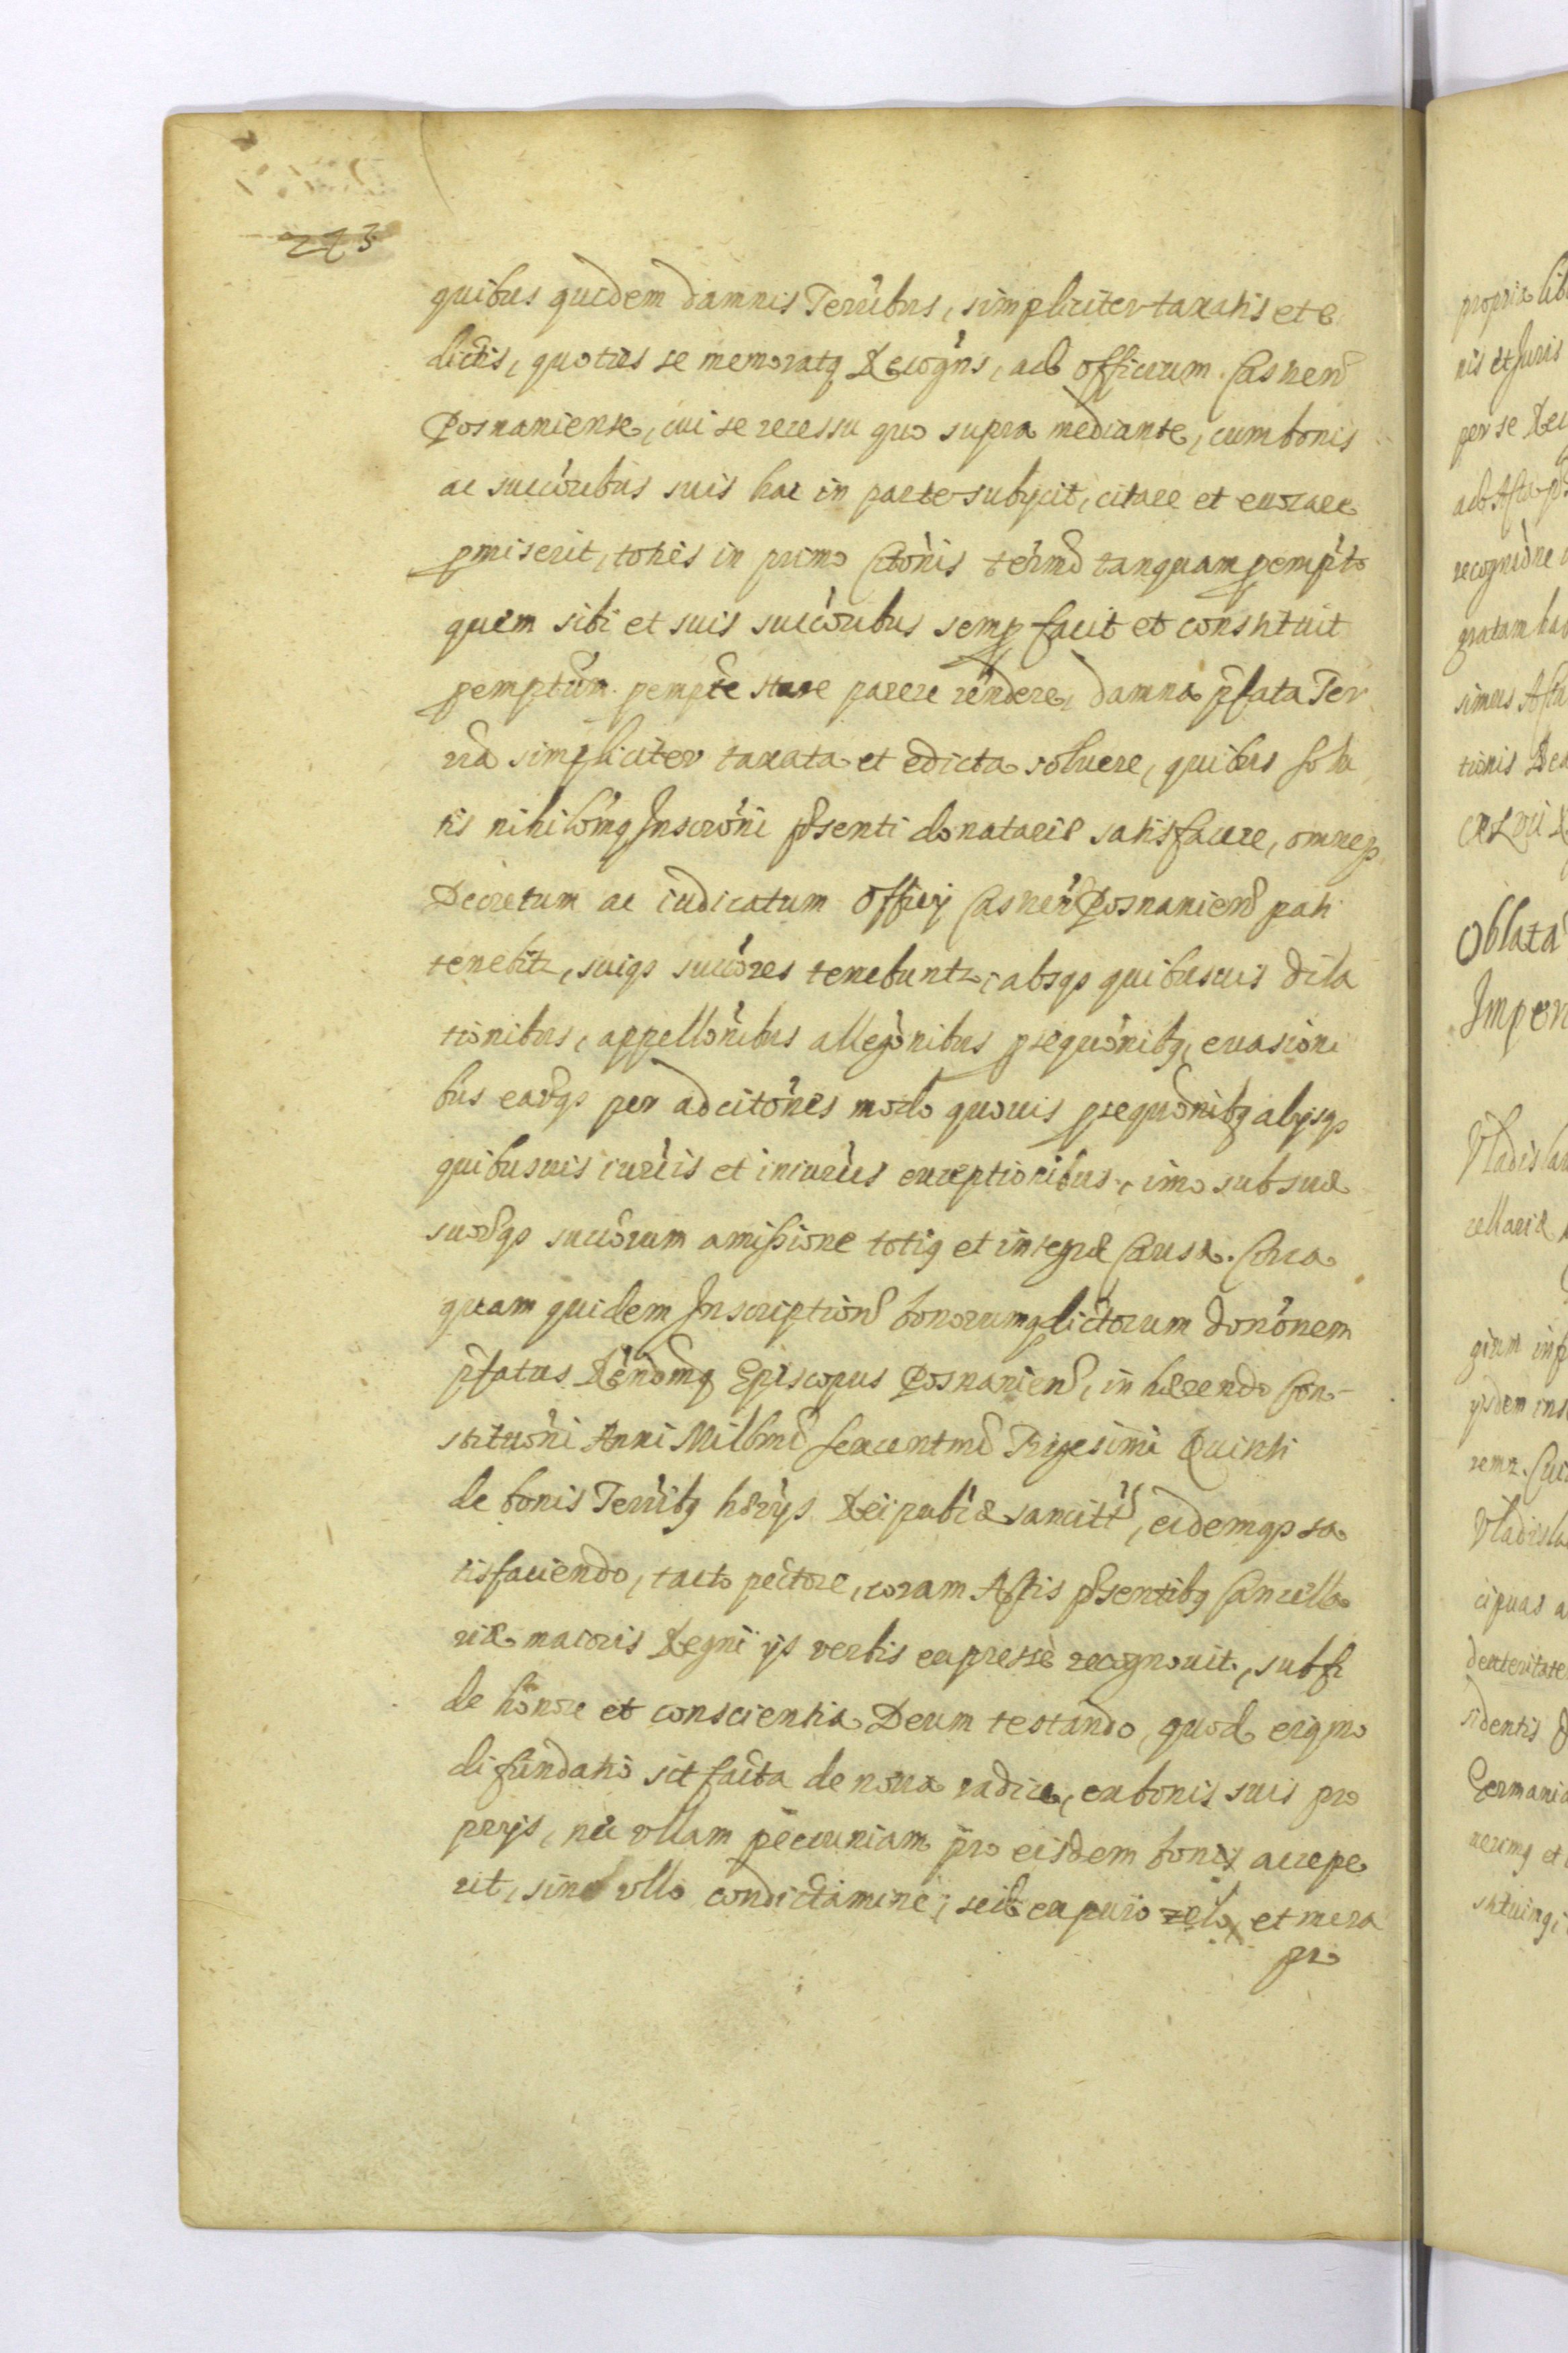 243
quibus quidem damnis Terribus, simpliciter taxatis et e
dictis, quoties se memoratq Recogns, ad Officium Castren
Posnaniense, cui se recessu quo supra mediante, cum bonis
ac succoribus suis hac in parte subycit, citare et euocare
pmiserit, toties in primo Citonis termo tanquam pempto
quem sibi et suis succoribus semp facit et constituit
pemptum pempte stare parere rendere, damna pfata Ter
ria simpliciter taxata et edicta soluere, quibus solu
tis nihilomq Inscroni psenti donatariæ satisfacere, omneq
Decretum ac iudicatum Officy Castren Posnanien pati
tenebit, suiq succores tenebunt, absq quibusuis dila
tionibus, appellonibus allegonibus psequonibq, euasioni
bus earq per adcitones modo quouis psequonibq alysq
quibusuis iuriis et iniuriis exceptionibus, imo sub sua
suorq succorum amissione totiq et integræ Causæ. Circa
quam quidem Inscription bonorumq dictorum dononem
pfatus Rendmq Episcopus Posnanien, in hærendo Con-
stitutioni Anni Millmi sexcentmi Trigesimi Quinti
de bonis Terribq hærys Reipublicæ sancitt, eidemq sa
tisfaciendo, tacto pectore, coram Actis psentibq Cancella
riæ maioris Regni ys verbis expresse recognouit, sub fi
de honore et conscientia Deum testando, quod eiqmo
di fundatio sit facta de noua radice, ex bonis suis pro
prys, nec vllam pecuniam pro eisdem bonis accepe
rit, sine vllo condictamine, sed ex puro zelo, et mera
pro
propria lib
nis et Juris
per se Rec
ad Acta p
recognidne
gratam hab
simus Acta
tionis
Oblata
Imper
Vladisla
cellariæ
gium inf
ysdem ins
Vladisla
cipuas a
dexteritate
sidentis
Germania